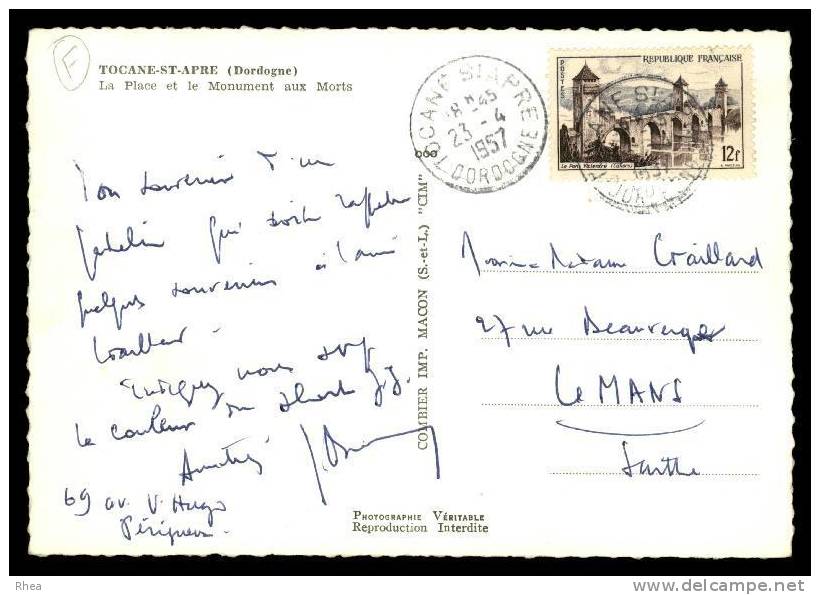 F
TOCANE-ST-APRE (Dordogne)
La Place et le Monument aux Morts
TOCANE ST APRE
18 H 45
23 - 4
1957
DORDOGNE
REPUBLIQUE FRANÇAISE
POSTES
Le Pont Valentré (Cahors)
12f
Bon souvenir d'un
qui doit rappeler
quelques souvenirs à l'ami
Crailland.
Indiquez nous svp
la couleur du
Amitiés
69 av. V. Hugo
Périgueux.
COMBIER IMP. MACON (S.-et-L.) "CIM"
Madame Craillard
27 rue Beauverger
Le MANS
Sarthe
PHOTOGRAPHIE VÉRITABLE
Reproduction Interdite
Rhea
www.delcampe.net